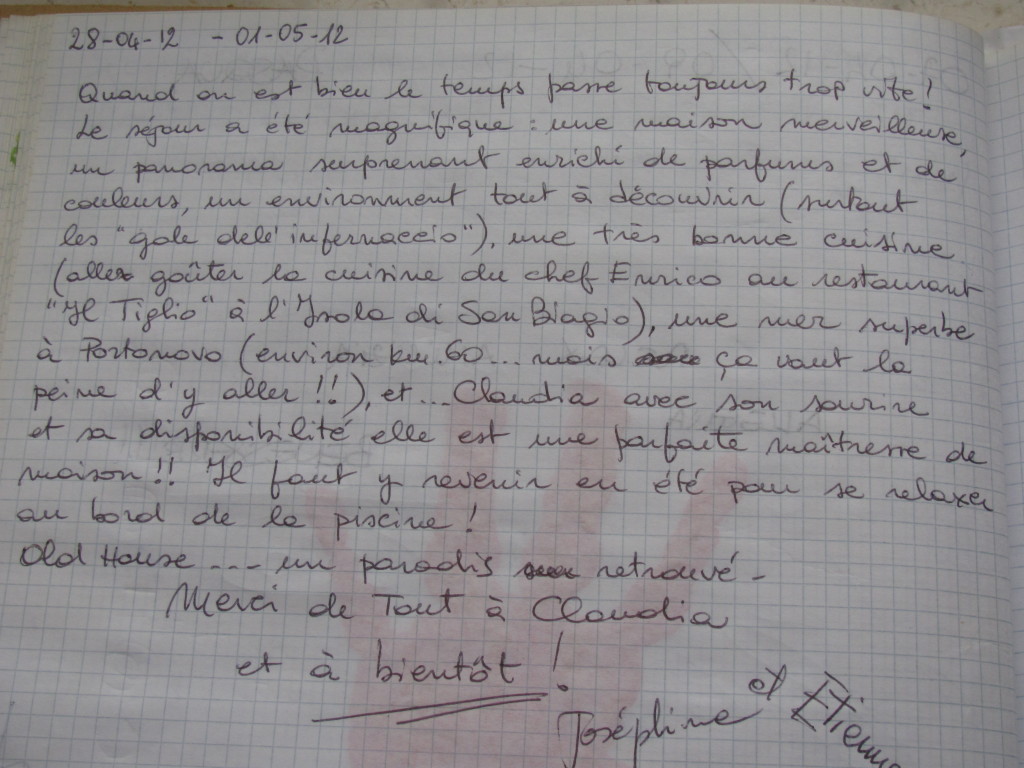 28-04-12 - 01-05-12
Quand on est bien le temps passe toujours trop vite!
Le séjour a été magnifique : une maison merveilleuse,
un panorama surprenant enrichi de parfums et de
couleurs, un environment tout à découvrir (surtout
les "gole dele infernaccio"), une très bonne cuisine
(aller goûter la cuisine du chef Enrico au restaurant
"Il Tiglio" à l'Isola di San Biagio), une mer superbe
à Portonovo (environ km. 60... mais ça vaut la
peine d'y aller !!), et ... Claudia avec son sourire
et sa disponibilité elle est une parfaite maîtresse de
maison !! Il faut y revenir en été pour se relaxer
au bord de la piscine !
Old House --- un paradis retrouvé -
Merci de Tout à Claudia
et à bientôt !
Joséphine et Etienne